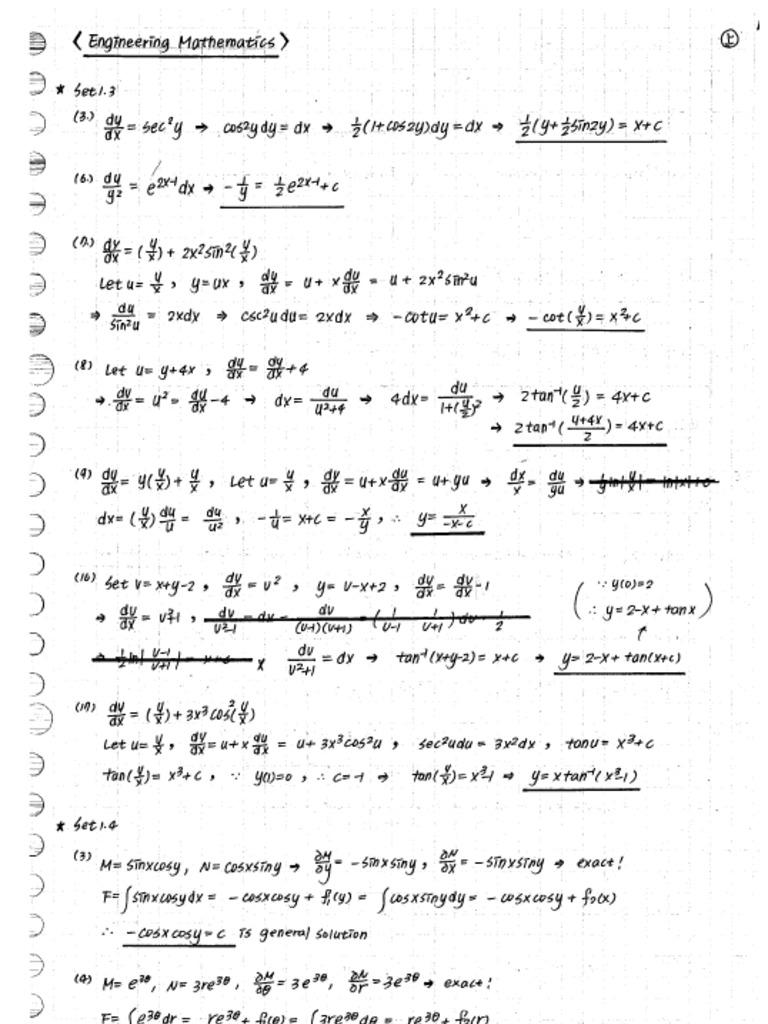 < Engineering Mathematics >
上
★ Set 1.3
(3.) dy/dx = sec²y → cos²y dy = dx → 1/2(1+cos2y)dy = dx → 1/2(y+1/2 sin2y) = x+c
(6.) dy/y² = e^(2x-1) dx → -1/y = 1/2 e^(2x-1) + c
(7.) dy/dx = (y/x) + 2x² sin²(y/x)
Let u = y/x , y = ux , dy/dx = u + x du/dx = u + 2x² sin²u
⇒ du/sin²u = 2xdx ⇒ csc²u du = 2xdx ⇒ -cotu = x²+c → -cot(y/x) = x²+c
(8) Let u = y+4x , du/dx = dy/dx + 4
→ dy/dx = u² = du/dx - 4 → dx = du/(u²+4) → 4dx = du/(1+(u/2)²) → 2tan⁻¹(u/2) = 4x+c
→ 2tan⁻¹((y+4x)/2) = 4x+c
(9) dy/dx = y(y/x) + y/x , Let u = y/x , dy/dx = u + x du/dx = u + yu → dx/x = du/yu →
dx = (y/x) du/u = du/u² , -1/u = x+c = -x/y , ∴ y = x/(-x-c)
(16) Set v = x+y-2 , dy/dx = v² , y = v-x+2 , dy/dx = dv/dx - 1
( ∵ y(0)=2
→ dv/dx = v²+1 ,
∴ y = 2-x+tanx )
↑
x dv/(v²+1) = dx → tan⁻¹(x+y-2) = x+c → y = 2-x+tan(x+c)
(17) dy/dx = (y/x) + 3x³cos²(y/x)
Let u = y/x , dy/dx = u + x du/dx = u + 3x³cos²u , sec²u du = 3x²dx , tanu = x³+c
tan(y/x) = x³+c , ∵ y(1)=0 , ∴ c=-1 → tan(y/x) = x³-1 → y = x tan⁻¹(x³-1)
★ Set 1.4
(3) M = sinxcosy, N = cosxsiny → ∂M/∂y = -sinxsiny , ∂N/∂x = -sinxsiny → exact!
F = ∫sinxcosydx = -cosxcosy + f₁(y) = ∫cosxsinydy = -cosxcosy + f₂(x)
∴ -cosxcosy = c is general solution
(4) M = e^(3θ), N = 3re^(3θ), ∂M/∂θ = 3e^(3θ), ∂N/∂r = 3e^(3θ) → exact!
F = ∫e^(3θ)dr = re^(3θ) + f₁(θ) = ∫3re^(3θ)dθ = re^(3θ) + f₂(r)